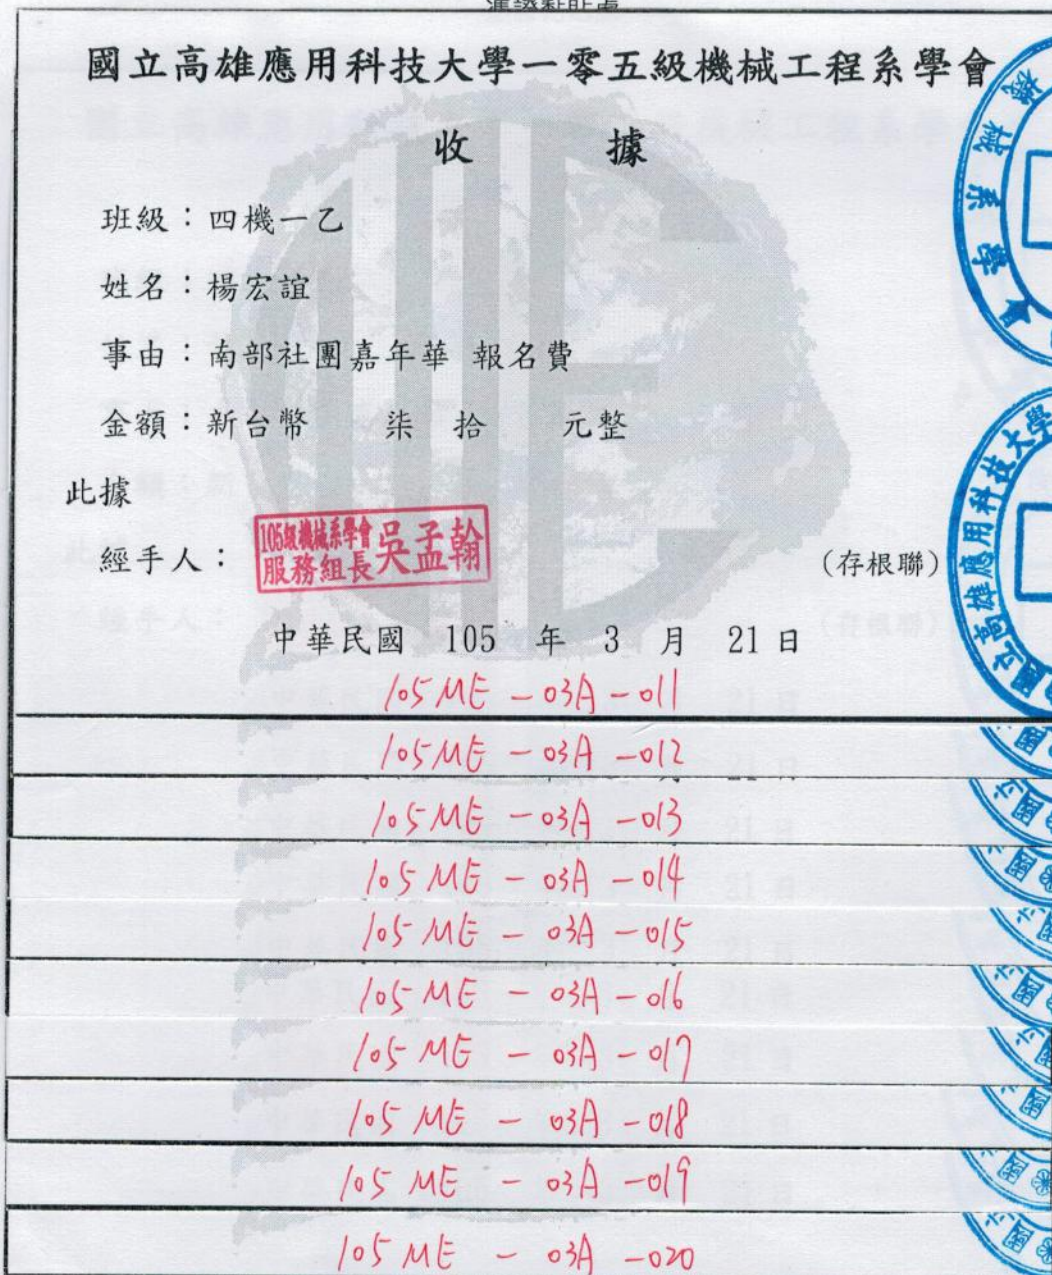 憑證黏貼處
國立高雄應用科技大學一零五級機械工程系學會
收 據
班級：四機一乙
姓名：楊宏誼
事由：南部社團嘉年華 報名費
金額：新台幣 柒 拾 元整
此據
經手人：
105級機械系學會
服務組長 吳孟翰
(存根聯)
中華民國 105 年 3 月 21 日
機械系學會
國立高雄應用科技大學
105 ME - 03A - 011
105 ME - 03A - 012
105 ME - 03A - 013
105 ME - 03A - 014
105 ME - 03A - 015
105 ME - 03A - 016
105 ME - 03A - 017
105 ME - 03A - 018
105 ME - 03A - 019
105 ME - 03A - 020